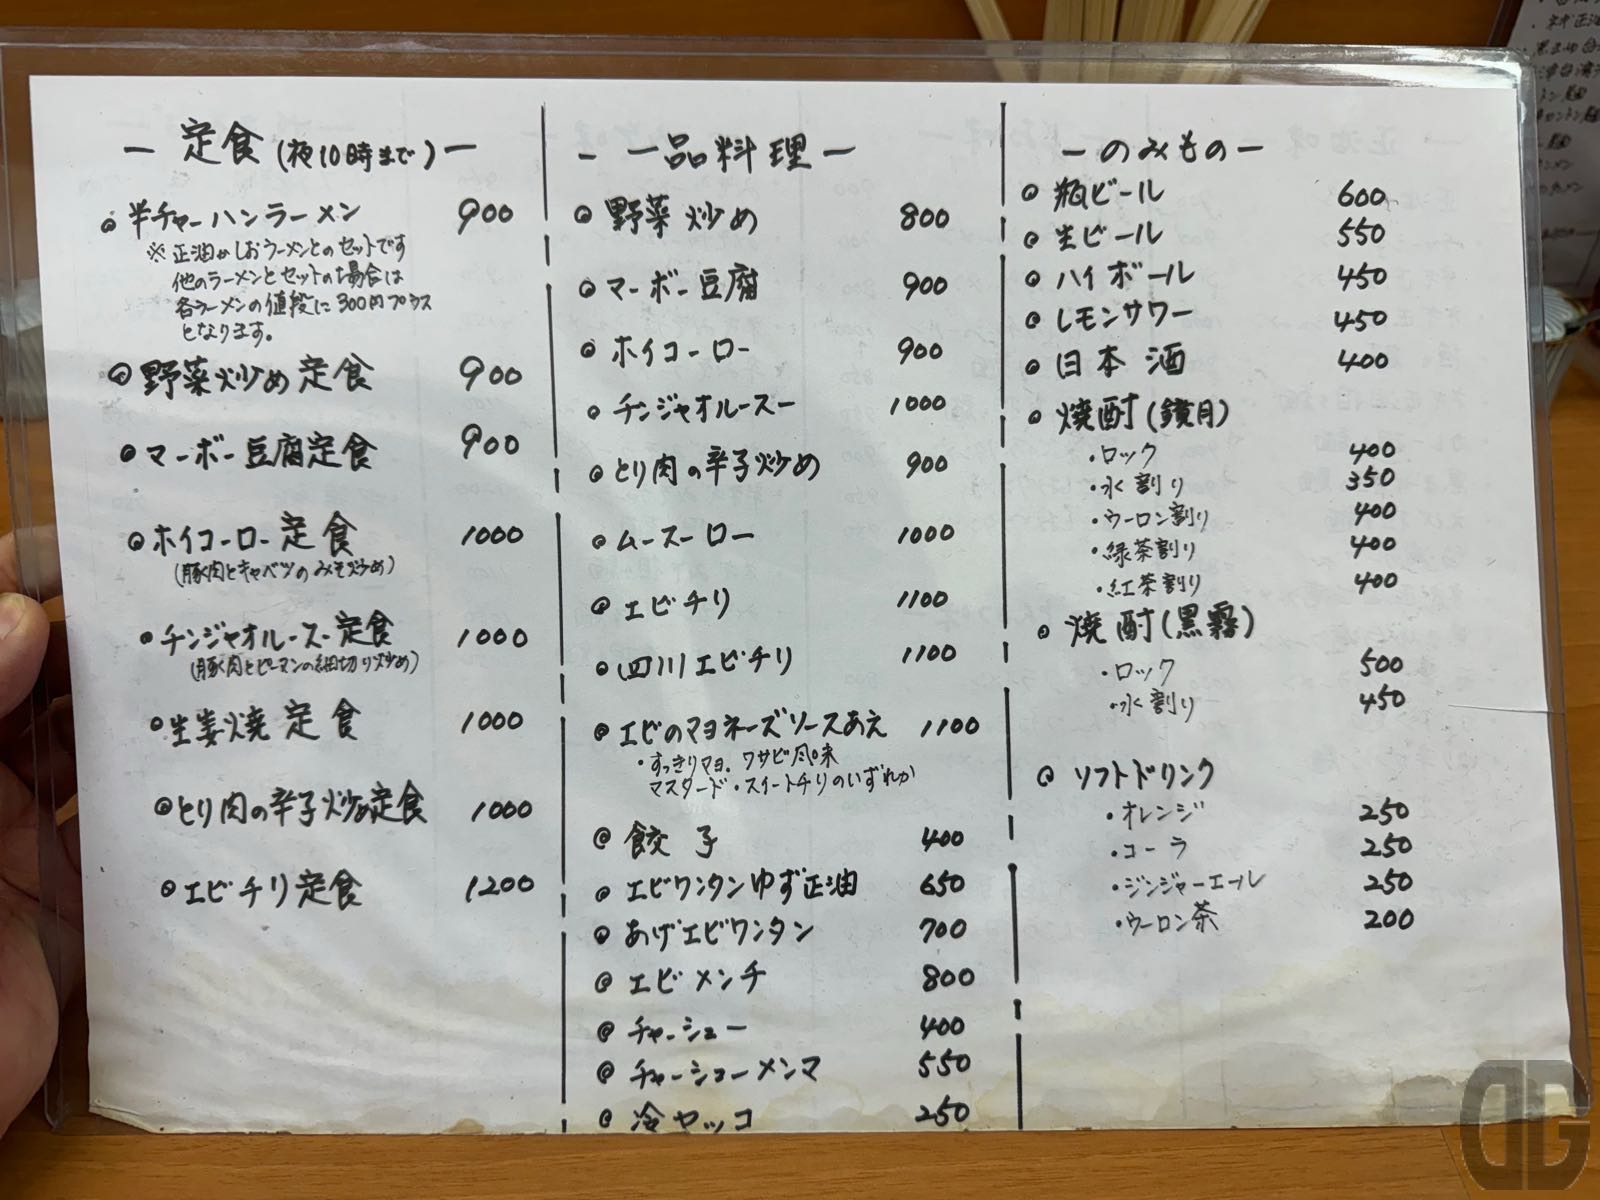 ー 定食(夜10時まで) ー
◎ 半チャーハンラーメン 900
※ 正油かしおラーメンとのセットです
他のラーメンとセットの場合は
各ラーメンの値段に300円プラス
となります。
◎ 野菜炒め定食 900
◎ マーボー豆腐定食 900
◎ ホイコーロー定食 1000
(豚肉とキャベツのみそ炒め)
◎ チンジャオルースー定食 1000
(豚肉とピーマンの細切り炒め)
◎ 生姜焼定食 1000
◎ とり肉の辛子炒め定食 1000
◎ エビチリ定食 1200
ー 一品料理 ー
◎ 野菜炒め 800
◎ マーボー豆腐 900
◎ ホイコーロー 900
◎ チンジャオルースー 1000
◎ とり肉の辛子炒め 900
◎ ムースーロー 1000
◎ エビチリ 1100
◎ 四川エビチリ 1100
◎ エビのマヨネーズソースあえ 1100
・すっきりマヨ.ワサビ風味
マスタード・スイートチリのいずれか
◎ 餃子 400
◎ エビワンタンゆず正油 650
◎ あげエビワンタン 700
◎ エビメンチ 800
◎ チャーシュー 400
◎ チャーシューメンマ 550
◎ 冷ヤッコ 250
ー のみもの ー
◎ 瓶ビール 600
◎ 生ビール 550
◎ ハイボール 450
◎ レモンサワー 450
◎ 日本酒 400
◎ 焼酎(鏡月)
・ロック 400
・水割り 350
・ウーロン割り 400
・緑茶割り 400
・紅茶割り 400
◎ 焼酎(黒霧)
・ロック 500
・水割り 450
◎ ソフトドリンク
・オレンジ 250
・コーラ 250
・ジンジャーエール 250
・ウーロン茶 200
DG